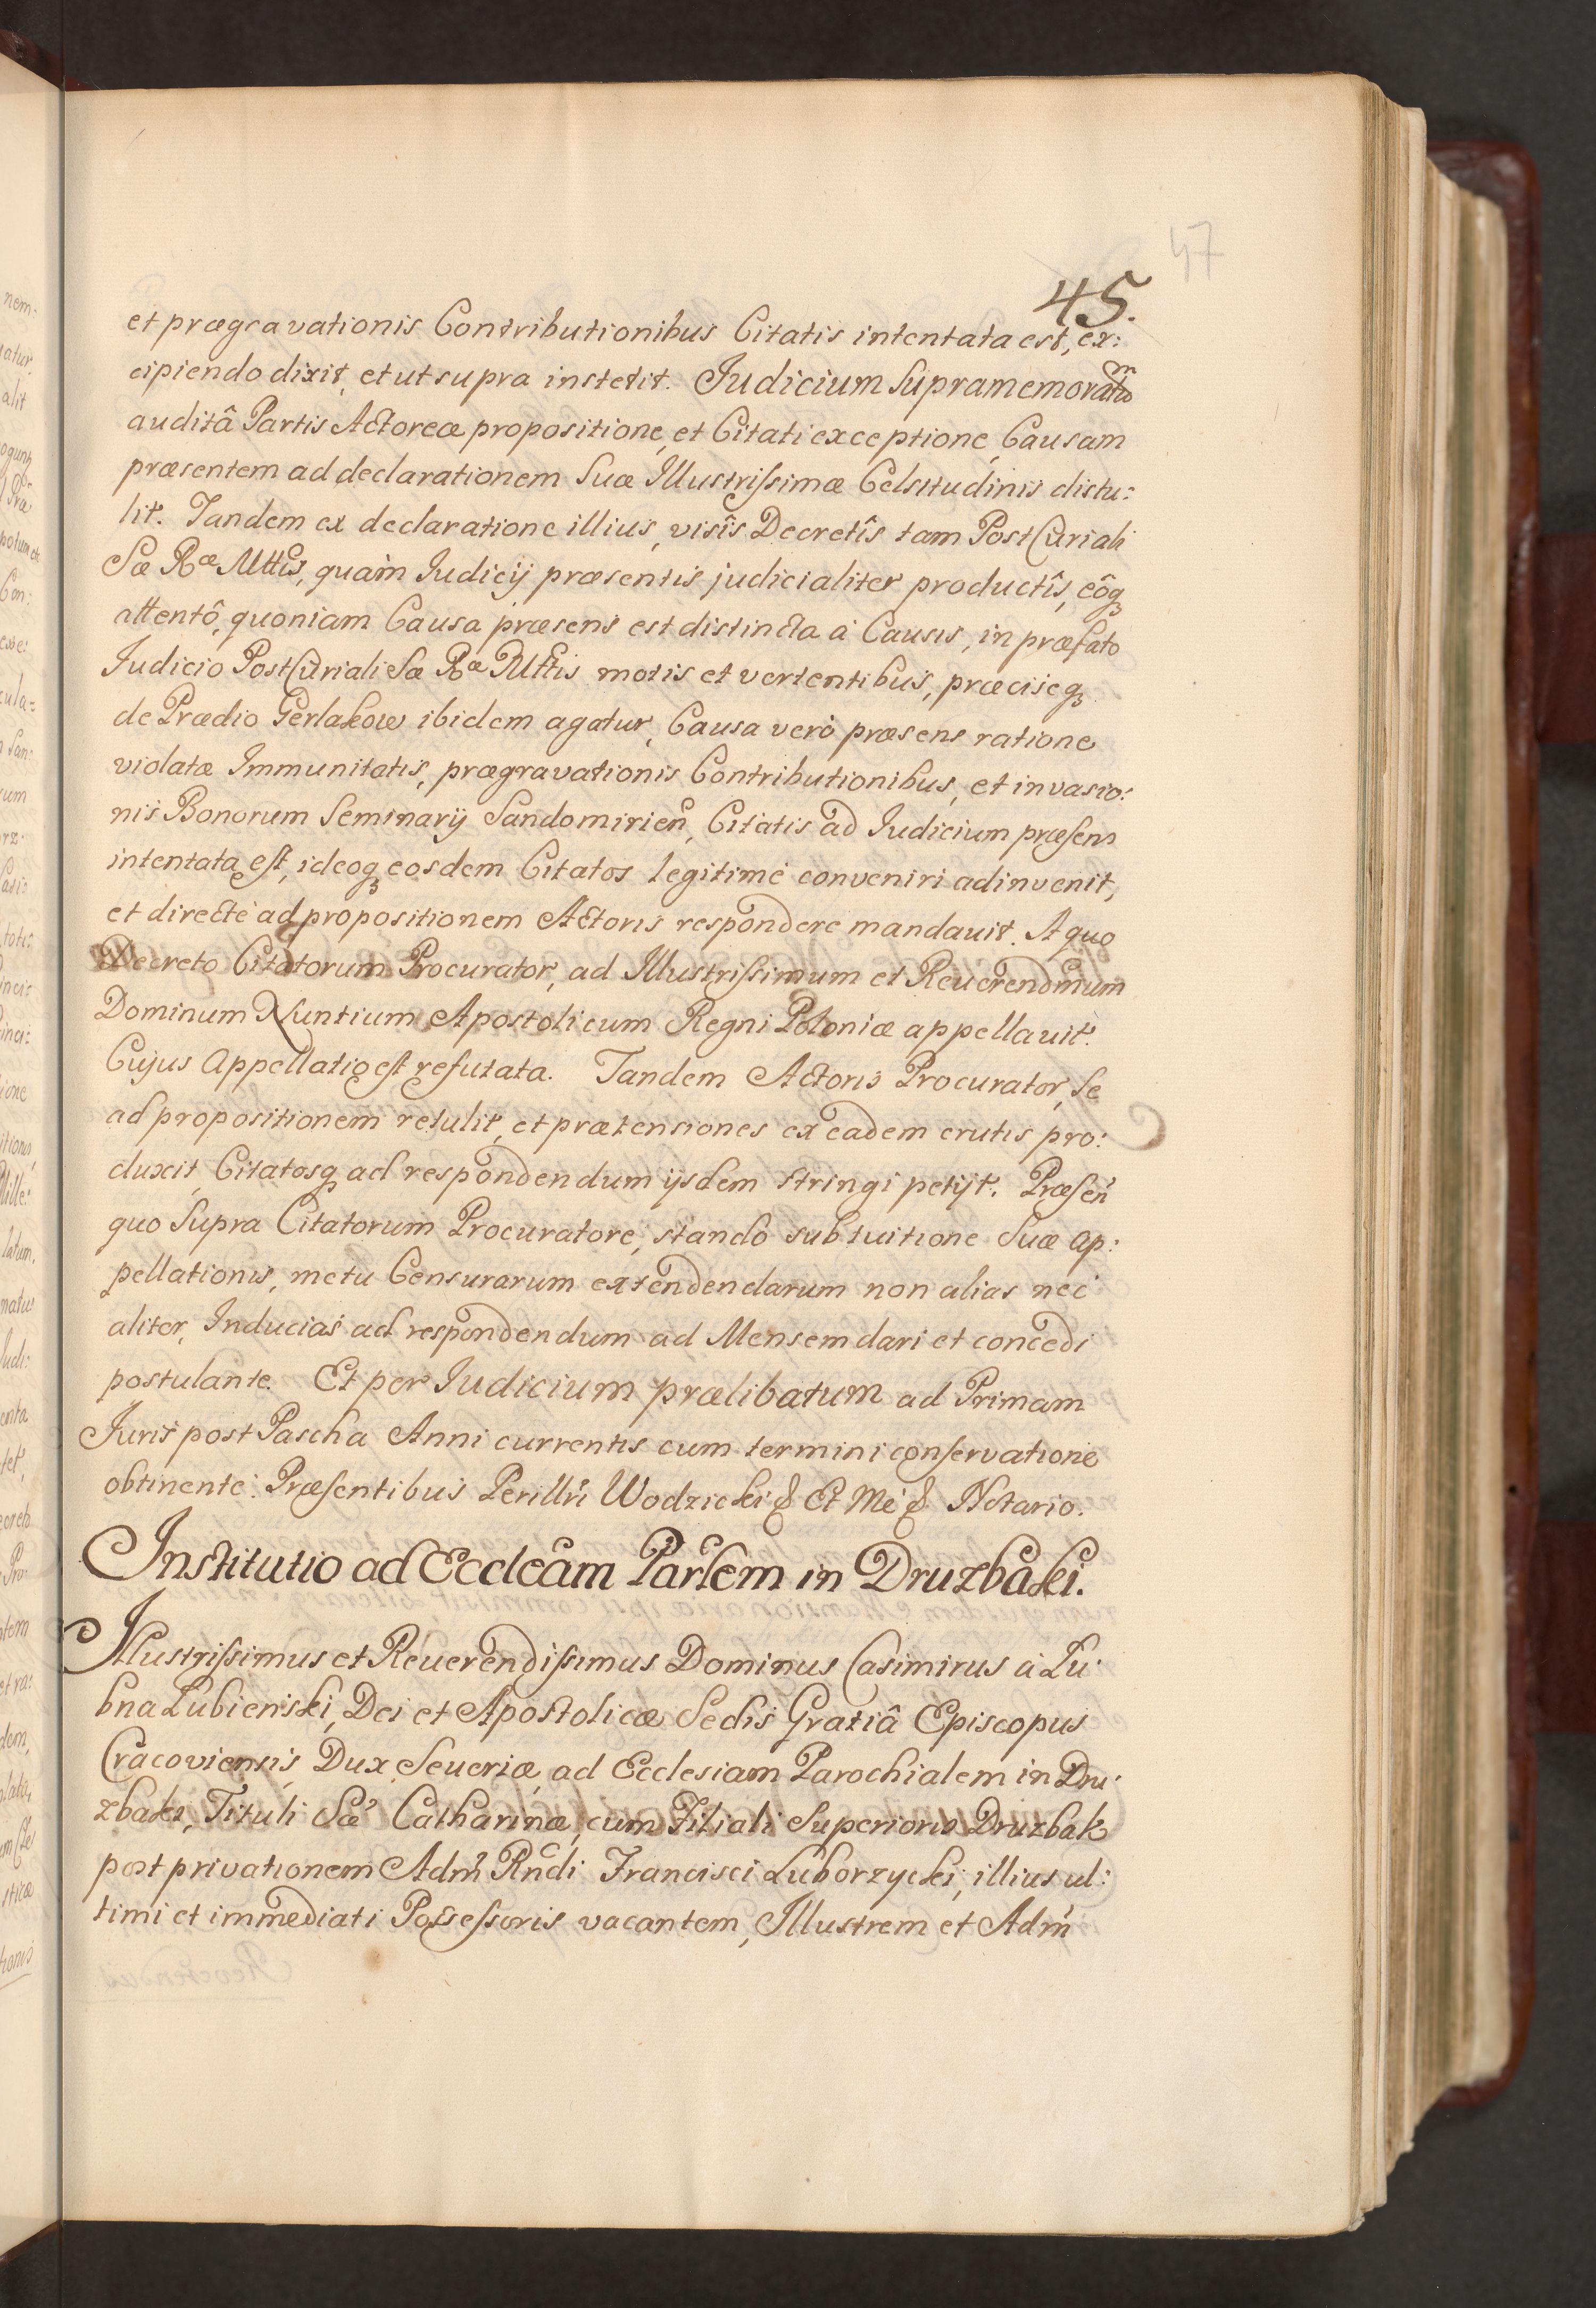 47
45.
et prægravationis Contributionibus Citatis intentata est, ex:
cipiendo dixit, et ut supra institit. Judicium Supramemoratũ
auditâ Partis Actoreæ propositione, et Citati exceptione, Causam
præsentem ad declarationem Suæ Illustrissimæ Celsitudinis distu:
lit. Tandem ex declaratione illius, visîs Decretîs tam PostCuriali
Sæ Ræ Mttis, quàm Iudicij præsentis judicialiter productîs, eôq3
attentô, quoniam Causa præsens est distincta à Causis, in præfato
Judicio PostCuriali Sæ Ræ Mttis motis et vertentibus, præciseq3
de Prædio Gerlakow ibidem agatur, Causa verò præsens ratione
violatæ Immunitatis, prægravationis Contributionibus, et invasio:
nis Bonorum Seminarij Sandomirien̄, Citatis ad Iudicium præsens
intentata est, ideoq3 eosdem Citatos legitimè conveniri adinvenit,
et directè ad propositionem Actoris respondere mandavit. A quo
Decreto Citatorum Procurator, ad Illustrissimum et Reverendmum
Dominum Nuntium Apostolicum Regni Poloniæ appellavit.
Cujus Appellatio est refutata. Tandem Actoris Procurator, se
ad propositionem retulit, et prætensiones ex eadem erutis pro:
duxit, Citatosq3 ad respondendum ijsdem stringi petijt. Præsen̄
quo Supra Citatorum Procuratore, stando sub tuitione Suæ Ap:
pellationis, metu Censurarum extendendarum non alias nec
aliter, Inducias ad respondendum ad Mensem dari et concedi
postulante. Et per Iudicium prælibatum ad Primam
Juris post Pascha Anni currentis cum termini conservatione
obtinente. Præsentibus Perillri Wodzicki & Et Me & Notario.
Institutio ad Eccleãm Parlem in Druzbaki.
Illustrissimus et Reverendissimus Dominus Casimirus à Lu:
bna Lubienski, Dei et Apostolicæ Sedis Gratiâ Episcopus
Cracoviensis, Dux Severiæ, ad Ecclesiam Parochialem in Dru:
zbaki, Tituli Sæ Catharinæ, cum Filiali Superioris Druzbak
post privationem Adm̃ Rndi Francisci Luborzycki, illius ul:
timi et immediati Possessoris vacantem, Illustrem et Adm̃